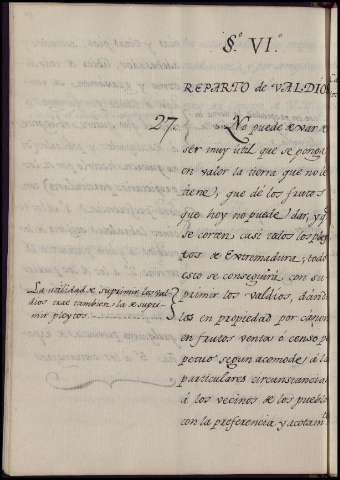 §.º VI.º
REPARTO de VALDÍO
27.
No puede dexar de
ser muy útil que se ponga
en valor la tierra que no le
tiene, que dé los frutos
que hoy no puede dar, y q.e
se corten casi todos los pley
tos de Extremadura; todo
esto se conseguirá con su
primir los valdíos, dando
los en propiedad por cánon
en frutos, ventas ó censo per
petuo segun acomode, á las
particulares circunstancias
á los vecinos de los pueblos
con la preferencia y acotam.to
La utilidad de suprimir los val
díos trae tambien la de supri-
mir pleytos.